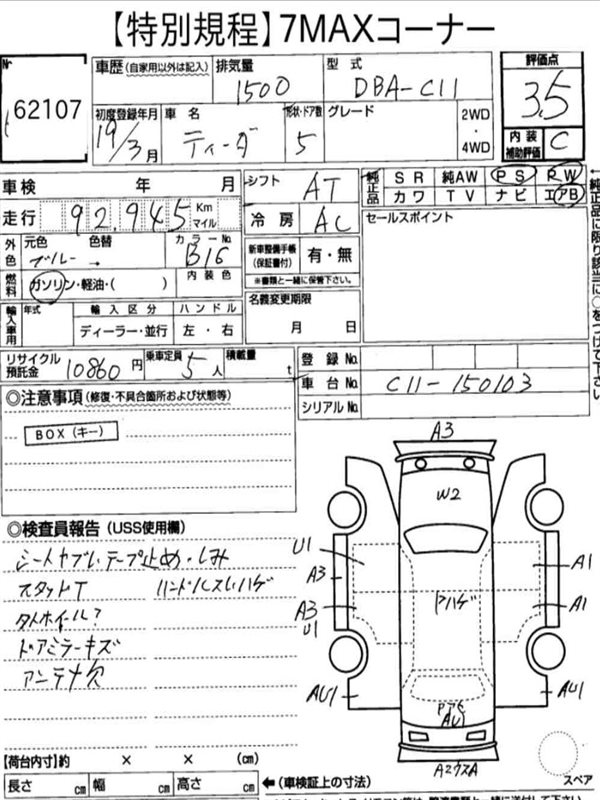 【特別規程】7MAXコーナー
Nr 62107
車歴 (自家用以外は記入) 排気量 1500 型式 DBA-C11 評価点 3.5
初度登録年月 19/3月 車名 ティーダ 形状・ドア数 5 グレード 2WD・4WD 内装補助評価 C
車検 年 月 シフト AT 純正品 SR 純AW PS PW
カワ TV ナビ エアB
走行 92,945 Km マイル 冷房 AC セールスポイント
外色 元色 ブルー 色替 カラーNo. B16 新車整備手帳(保証書付) 有・無
※書類と一緒に保管下さい。
燃料 ガソリン・軽油・( ) 内装色 名義変更期限
月 日
輸入車用 年式 輸入区分 ハンドル
ディーラー・並行 左・右
リサイクル預託金 10860円 乗車定員 5人 積載量 t 登録No.
車台No. C11-150103
シリアルNo.
◎注意事項 (修復・不具合箇所および状態等)
BOX(キー)
◎検査員報告 (USS使用欄)
シートヤブレテープ止め・しみ
スタッドT ハンドルスレハゲ
タイヤホイール?
ドアミラーキズ
アンテナ欠
A3
W2
U1
A3
A3
U1
AU1
A1
A1
AU1
ドハゲ
AU1
【荷台内寸】約 × × (cm)
長さ cm 幅 cm 高さ cm ←(車検証上の寸法)
スペア
↑純正品に限り該当に○をつけて下さい